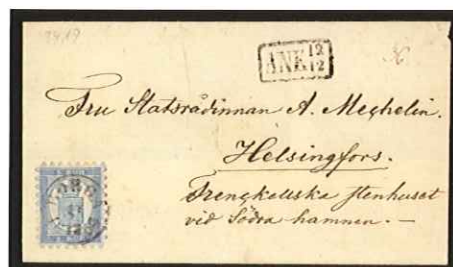 ANK 12/12
Fru Statsrådinnan A. Mechelin.
Helsingfors.
Frenckellska stenhuset
vid Södra hamnen. —